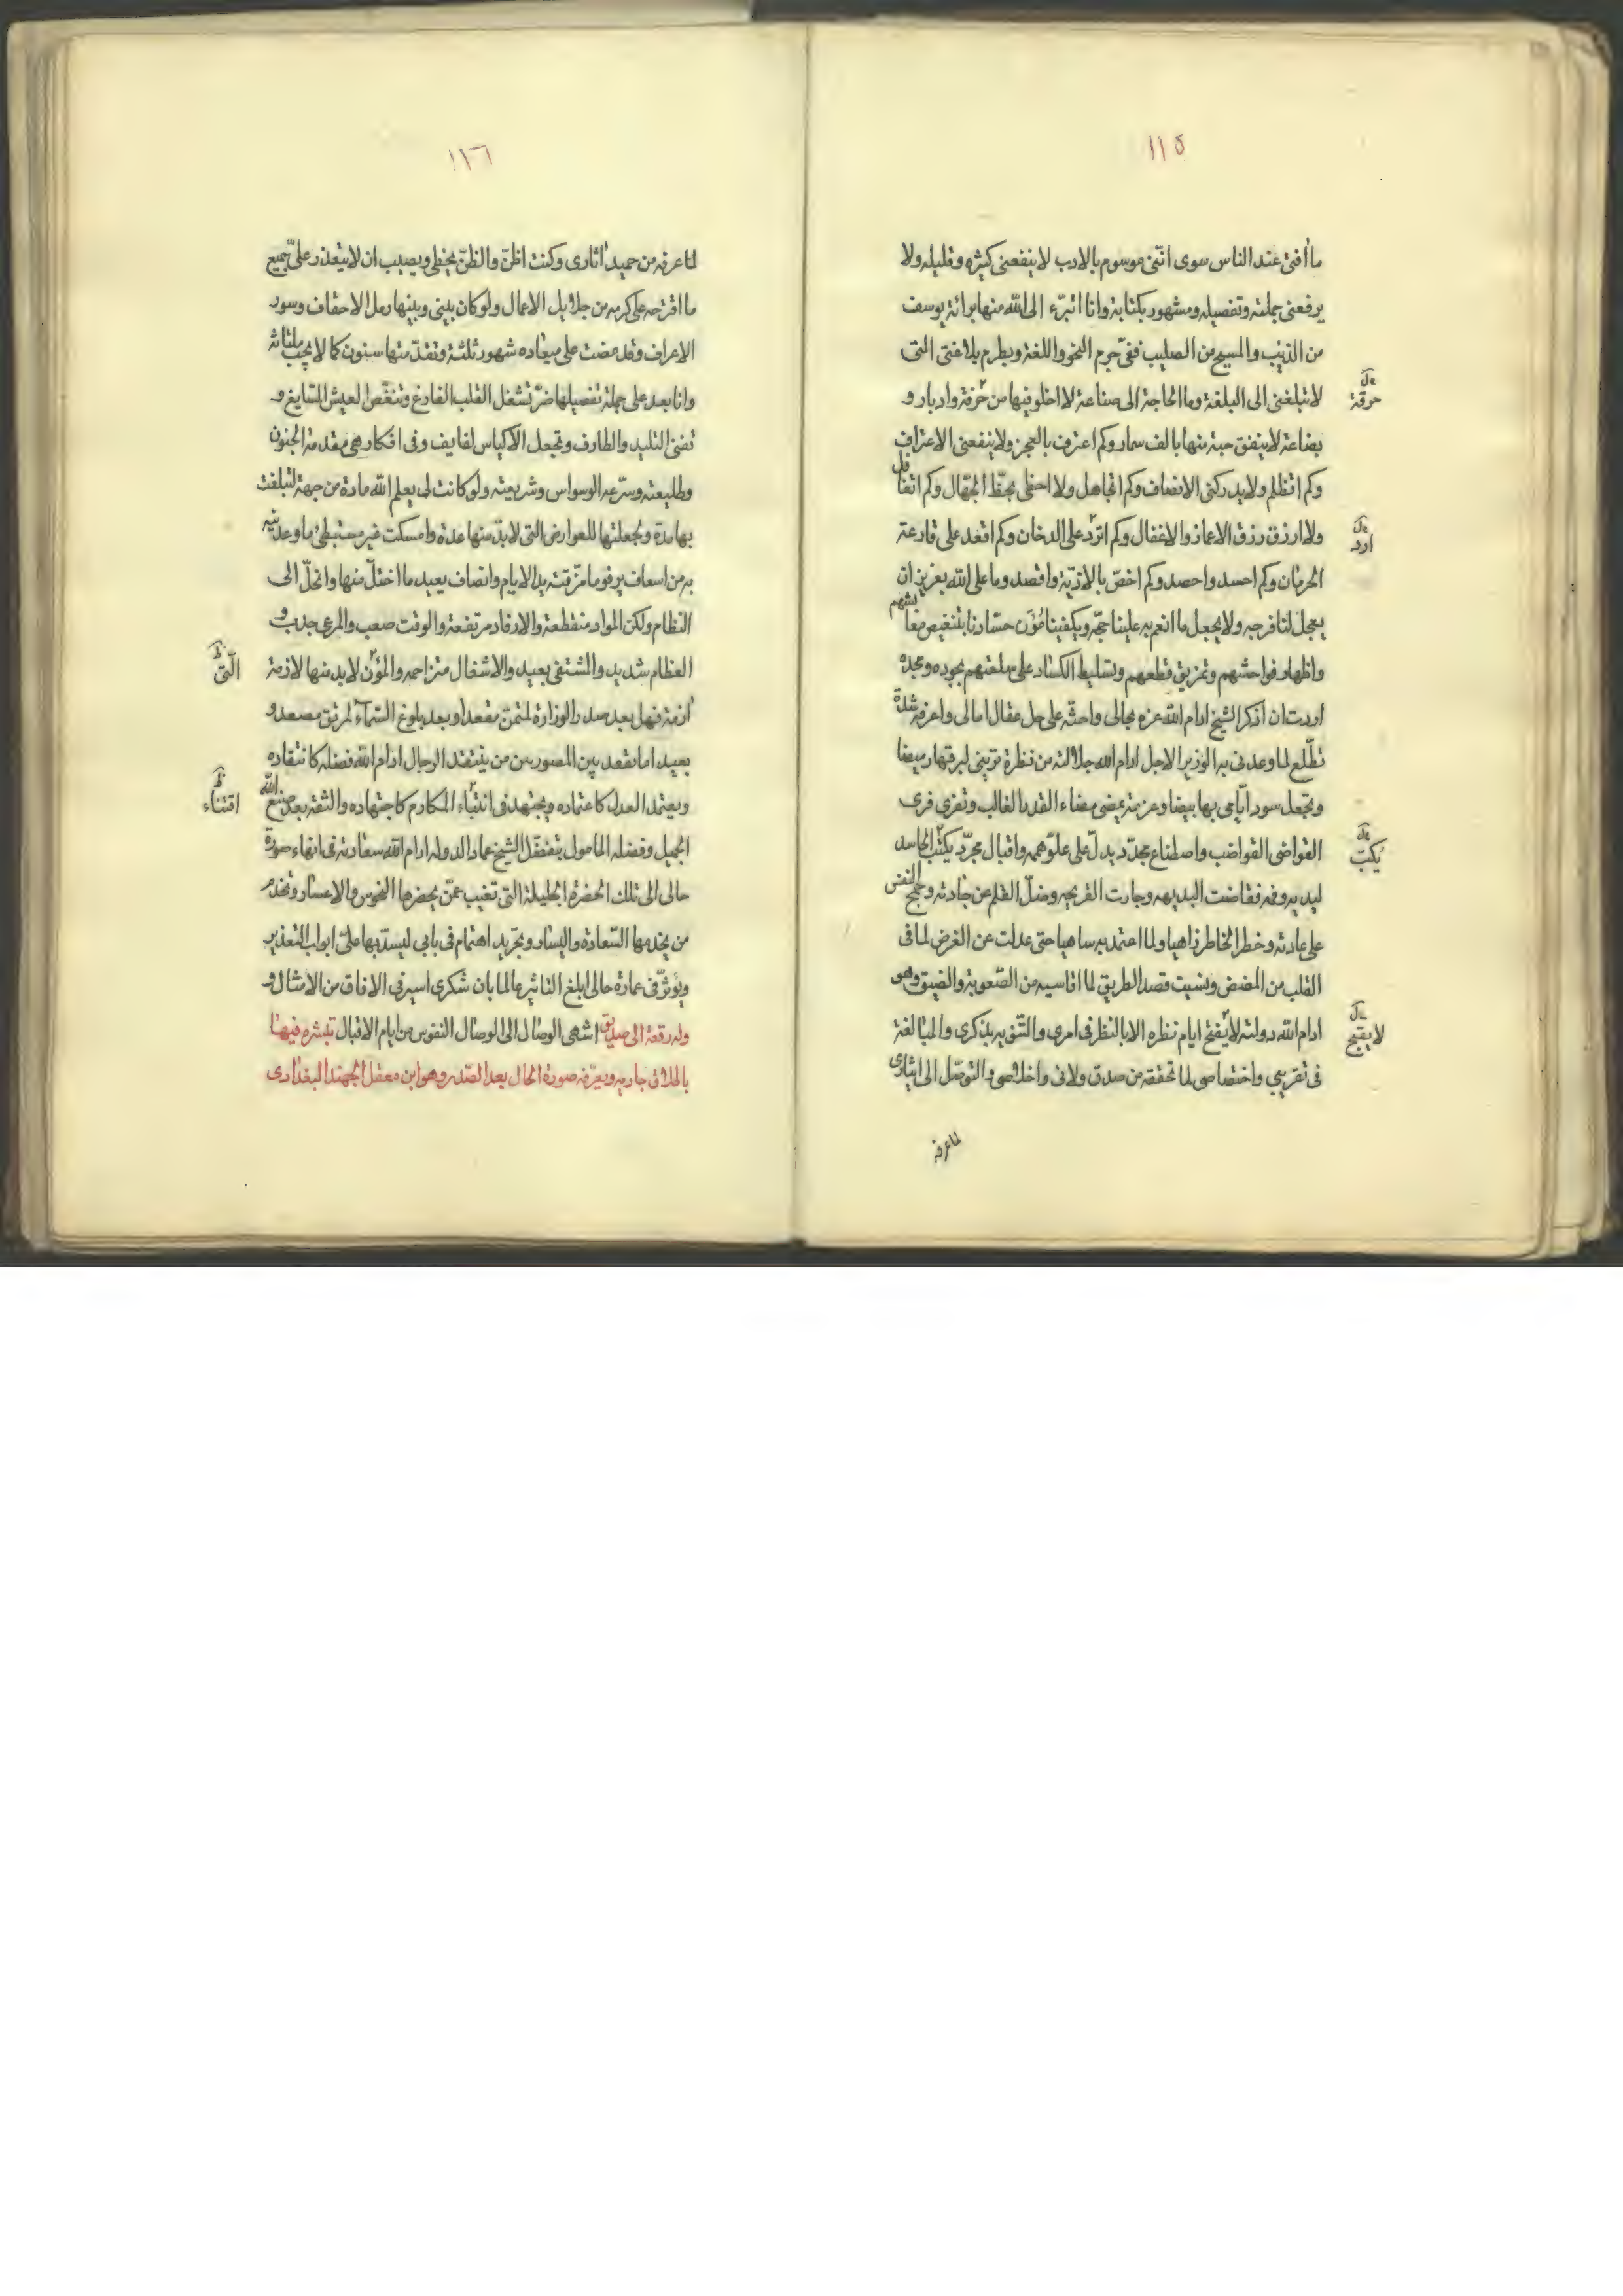 ١١٥
ما أفتى عند الناس سوى اننى موسوم بالادب لا ينفعنى كثيره وقليله ولا
يرفعنى جملته وتفصيله ومشهور بكتابة وانا اتبرّء الى الله منها برائة يوسف
من الذئب والمسيح من الصليب ففى حرم النحو واللغة ويطرم بلاغتى التى
لا تبلغنى الى البلغة وما الحاجة الى صناعة لا اخلو فيها من حرفة وادبار و
حرقة
بضاعة لا ينفق حبة منها بالف سمار وكم اعترف بالعجز ولا ينفعنى الاعتراف
وكم اتظلم ولا يدركنى الانصاف وكم اتجاهل ولا احظى بحظ الجهال وكم اتغافل
ولا ارزق رزق الاغفال وكم اتردّ على الدخان وكم اقعد على قارعة
ارد
الحرمان وكم احسد واحصد وكم اخصّ بالاذيّة واقصد وما على الله بعزيز ان
يعجل لنا فرجه ولا يجعل ما انعم به علينا حجّه ويكفينا مؤن حسّادنا بتنغيص معايشهم
واظهار فواحشهم وتمزيق قطعهم وتسليط الكساد على سلعتهم بجوده ومجده
اردت ان اذكر الشيخ ادام الله عزه بحالى واحثّه على حل عقال امالى واعرفه شدة
تطلّع لما وعدنى به الوزير الاجل ادام الله جلالته من نظرة ترينى لبرقها وميضا
وتجعل سود ايّامى بها بيضا وعزيمة يمضى مضاء القدر الغالب وتفرى فرى
القواضى القواضب واصطناع مجدّد يدلّ على علوّ همه واقبال مجرّد يكبّ الحاسد
يكبت
ليديه وفمه فغاضت البديهه وجارت القريحه وضلّ القلم عن جادته وجمح النفس
على عادته وخطر الخاطر ذاهبا ولما اعتمد به ساهيا حتى عدلت عن الغرض لما فى
القلب من المضض ونسيت قصد الطريق لما اقاسيه من الصّعوبة والضيق وهو
ادام الله دولته لا يفتح ايام نظره الا بالنظر فى امرى والتنويه بذكرى والمبالغة
لا يفتح
فى تقريبى واختصاصى لما تحققه من صدق ولائى واخلاصى والتوصّل الى ايثارى
لما عرفه
١١٦
لما عرفه من حميد اثارى وكنت اظنّ والظنّ يخطى ويصيب ان لا يتعذر علىّ جميع
ما اقترحه على كرمه من جلائل الاعمال ولو كان بينى وبينها رمل الاحقاف وسور
الاعراف وقد مضت على ميعاده شهور ثلثة وتقدّمتها سنون كما لا يجب ملتاثه
وانا بعد على جملة تفصيلها ضرّ تشغل القلب الفارغ وتنغّص العيش السّايغ و
تفنى التليد والطارف وتجعل الاكياس لفايف وفى افكار هى مقدمة الجنون
وطليعته وسرعه الوسواس وشريعته ولو كانت لى يعلم الله مادة من جهة لتبلغت
بها مدة وجعلتها للعوارض التى لا بدّ منها عدة وامسكت غير مستبطئ ما وعدنيه
به من اسعاف يرفو ما مزّقته يد الايام وانصاف يعيد ما اختلّ منها وانحلّ الى
النظام ولكن المواد منقطعة والارفاد مرتفعة والوقت صعب والمرعى جدب و
العظام شديد والمشتفى بعيد والاشغال متزاحمه والمؤن لا بد منها لازمة
الّتى
ازمة فهل بعد صدر الوزارة لمتمنّ مقعد او بعد بلوغ السّماء لمرتق مصعد و
بعيد اما تقعد بين المصورين من ينتقد الرجال ادام الله فضله كانتقاده
ويعتمد العدل كاعتماده ويجتهد فى انتقاء المكارم كاجتهاده والثقه بعد صنع الله
اقتناء
الجميل وفضله المامول بتفضّل الشيخ عماد الدوله ادام الله سعادته فى انهاء صورة
حالى الى تلك الحضرة الجليلة التى تغيب عمّن يحضرها النحوس والاعسار وتخدم
من يخدمها السّعادة واليسار وتجريد اهتمام فى بابى ليسدّ بها علىّ ابواب التعذير
ويؤثّر فى عمارة حالى ابلغ التاثير عالما بان شكرى اسير فى الافاق من الامثال و
وله رقعة الى صديق اشهى الوصال الى الوصال النفوس من ايام الاقبال تبشره فيها
باطلاق جاريه ويعرّفه صورة الحال بعد الصّدر وهو ابن معقل الجهبذ البغدادى